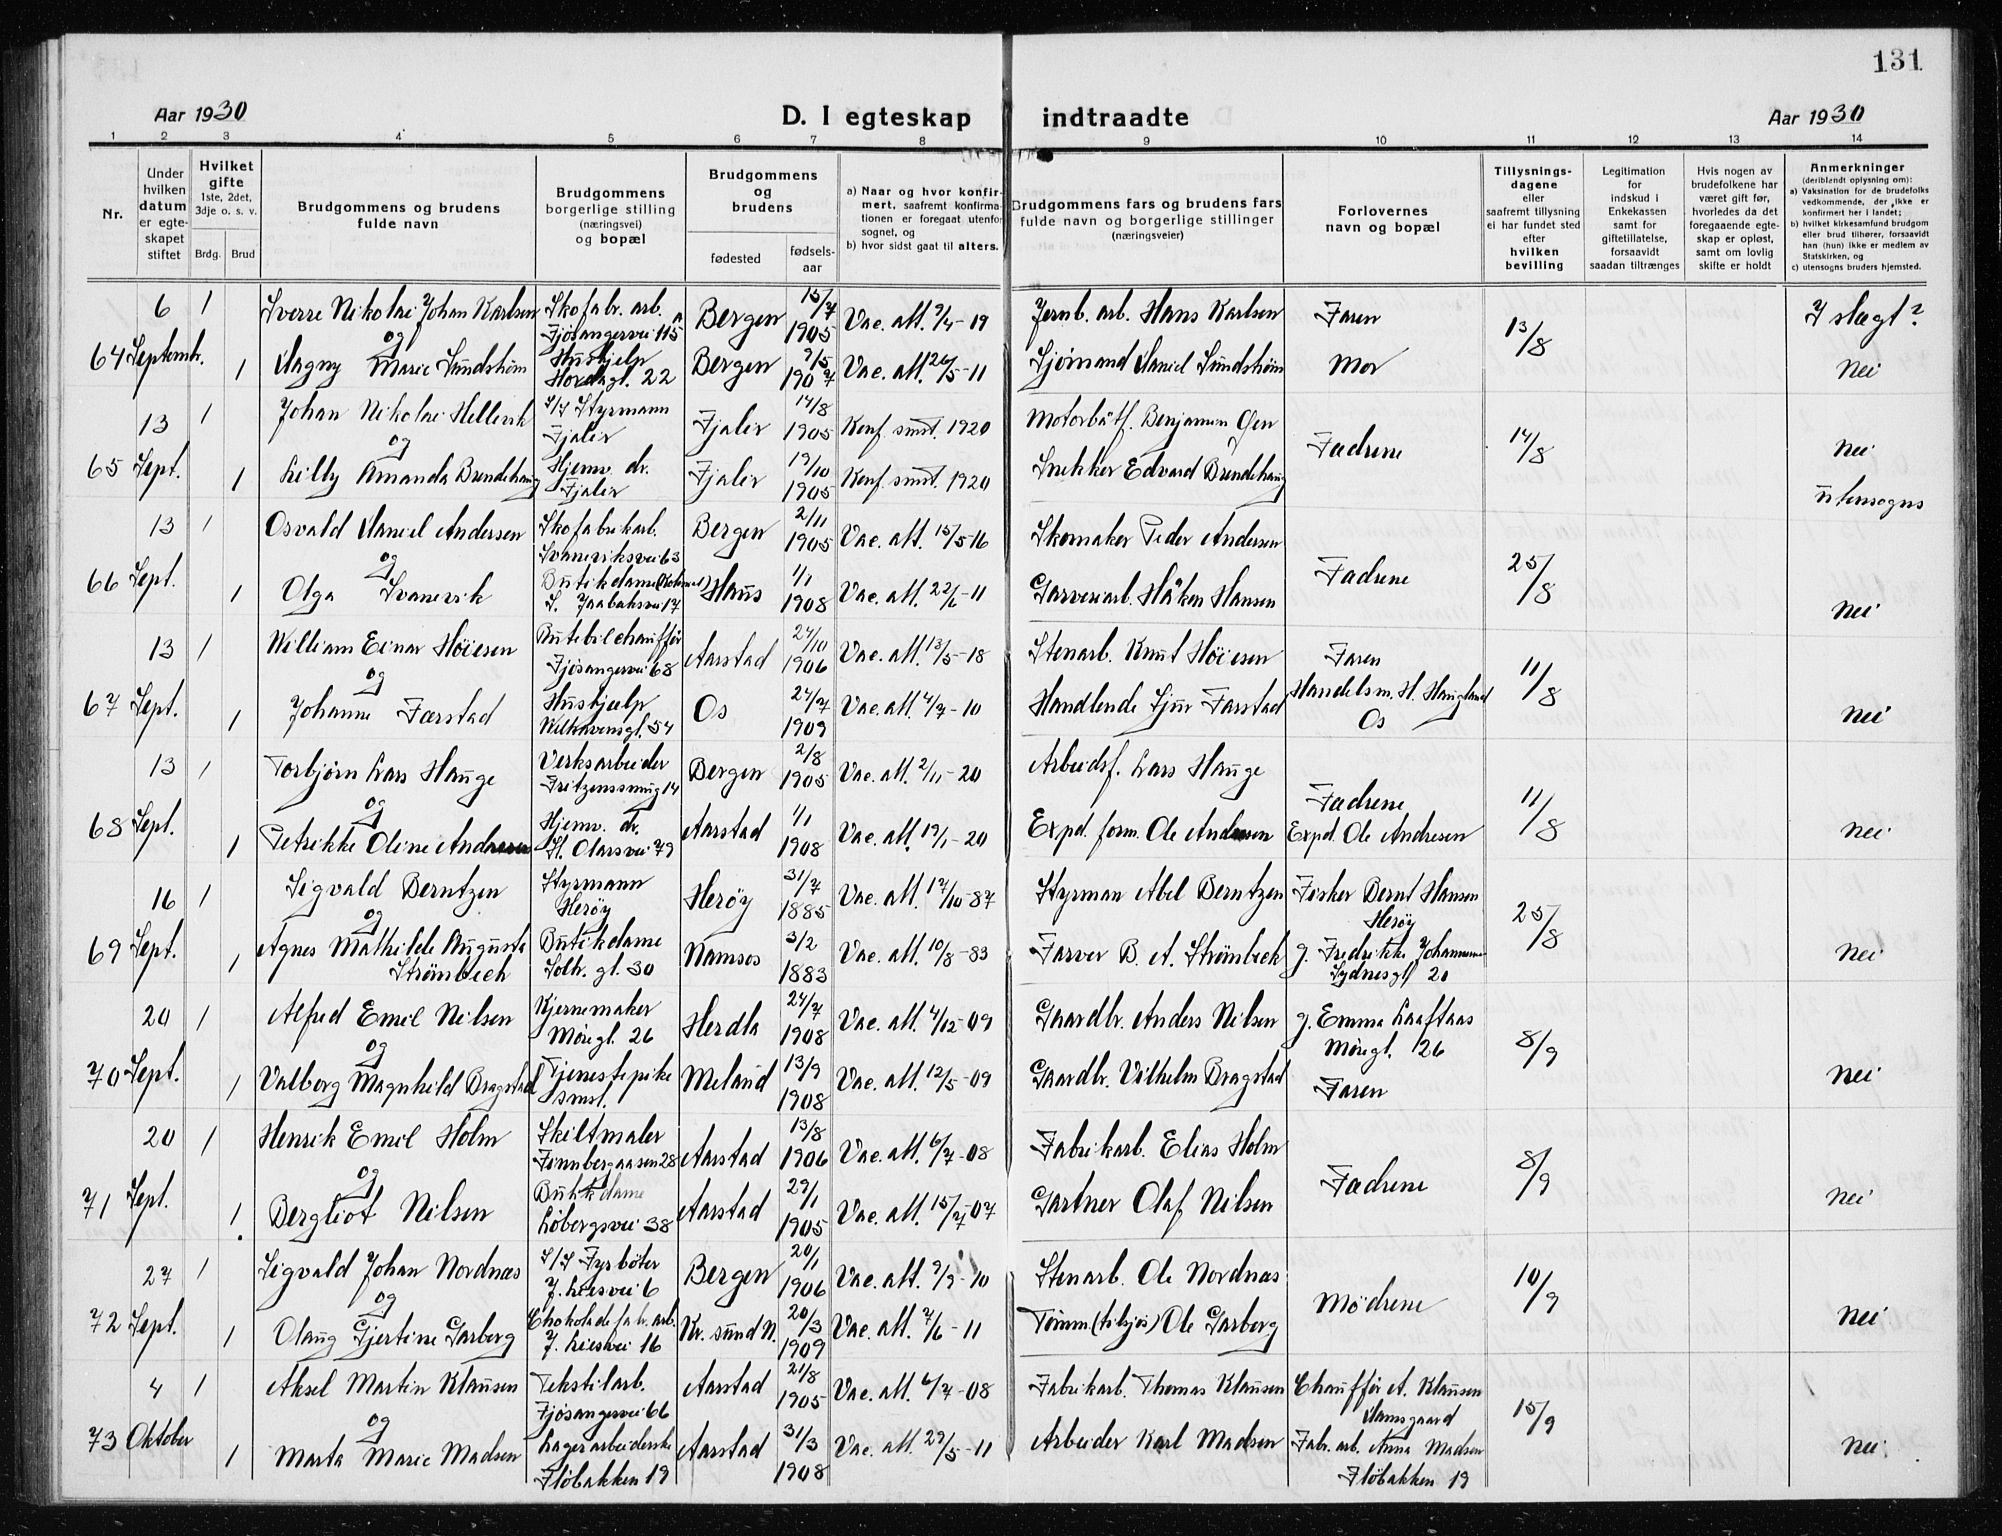 131
Aar 1930
D. I egteskap indtraadte
Aar 1930
1 2 3 4 5 6 7 8 9 10 11 12 13 14
Nr.
Under hvilken datum er egteskapet stiftet
Hvilket gifte 1ste, 2det, 3dje o. s. v.
Brdg. Brud
Brudgommens og brudens fulde navn
Brudgommens borgerlige stilling (næringsvei) og bopæl
Brudgommens og brudens
fødested
fødsels-aar
a) Naar og hvor konfirmert, saafremt konfirmationen er foregaat utenfor sognet, og
b) hvor sidst gaat til alters.
Brudgommens fars og brudens fars fulde navn og borgerlige stillinger (næringsveier)
Forlovernes navn og bopæl
Tillysningsdagene eller saafremt tillysning ei har fundet sted efter hvilken bevilling
Legitimation for indskud i Enkekassen samt for giftetillatelse, forsaavidt saadan tiltrænges
Hvis nogen av brudefolkene har været gift før, hvorledes da det foregaaende egteskap er opløst, samt om lovlig skifte er holdt
Anmerkninger (deriblandt oplysning om):
a) Vaksination for de brudefolks vedkommende, der ikke er konfirmert her i landet;
b) hvilket kirkesamfund brudgom eller brud tilhører, forsaavidt han (hun) ikke er medlem av Statskirken, og
c) utensogns bruders hjemsted.
64 6 Septembr. 1 Sverre Nikolai Johan Karlsen Skofabr. arb. Fjøsangervei 115 A Bergen 15/7 1905 Vac. att. 9/4-19 Jernb. arb. Hans Karlsen Faren 13/8 I slegt?
og
1 Dagny Marie Sundstrøm Hushjelp Hordagt. 22 Bergen 9/5 1907 Vac. att. 26/5-11 Sjømand Daniel Sundstrøm Mor Nei
65 13 Sept. 1 Johan Nikolai Hellevik S/S Styrmann Fjaler Fjaler 14/8 1905 Konf. smst. 1920 Motorbåtf. Benjamin Fadrene 14/8 Nei
og
1 Lilly Amanda Brendehaug Hjemv. dr. Fjaler Fjaler 19/10 1905 Konf. smst. 1920 Snekker Edvard Brendehaug utensogns
66 13 Sept. 1 Osvald Daniel Andersen Skofabrikarb. Svaneviksvei 63 Bergen 2/11 1905 Vac. att. 15/5-16 Skomaker Peder Andersen Fadrene 25/8
og
1 Olga Svanevik Butikdame S. Jaabaksvei 17 Haus 1/1 1908 Vac. att. 22/6-11 Garveriarb. Håkon Hansen Nei
67 13 Sept. 1 William Einar Høiesen Rutebilchauffør Fjøsangervei 68 Aarstad 24/10 1906 Vac. att. 13/5-18 Stenarb. Knut Høiesen Faren 11/8
og
1 Johanne Færstad Hushjælp 54 Os 24/7 1909 Vac. att. 4/7-10 Handlende Sjur Farstad Handelsm. H. Haugland Os Nei
68 13 Sept. 1 Torbjørn Lars Hauge Verksarbeider Fritzenssmug 14 Bergen 2/8 1905 Vac. att. 2/11-20 Arbeidsf. Lars Hauge Fadrene 11/8
og
1 Petrikke Oline Andresen Hjemv. dr. St. Olavsvei 79 Aarstad 1/1 1908 Vac. att. 19/1-20 Exped. form. Ole Andresen Expd. Ole Andresen Nei
69 16 Sept. 1 Sigvald Berntzen Styrmann Herøy Herøy 31/7 1885 Vac. att. 17/10-87 Styrman Abel Berntzen Fisker Bernt Hansen Herøy 25/8
og
1 Agnes Mathilde Augusta Strømbeck Butikdame Solh. gt. 30 Namsos 3/2 1883 Vac. att. 10/8-83 Farver B. A. Strømbeck g. Fredrikke Johannesen Sydnesgt 20 Nei
70 20 Sept. 1 Alfred Emil Nilsen Kjernemaker Møregt. 26 Herdla 24/7 1908 Vac. att. 4/12-09 Gaardbr. Anders Nilsen g. Emma Laaftaas Møregt. 126 8/9
og
1 Valborg Magnhild Bragstad Tjenestepike smst. Meland 13/9 1908 Vac. att. 12/5-09 Gaardbr. Vilhelm Bragstad Faren Nei
71 20 Sept. 1 Henrik Emil Holm Skiltmaler Finnbergaasen 28 Aarstad 13/8 1906 Vac. att. 6/7-08 Fabrikarb. Elias Holm Fadrene 8/9
og
1 Bergliot Nilsen Butikdame Løbergsvei 38 Aarstad 29/1 1905 Vac. att. 15/7-07 Gartner Olaf Nilsen Nei
72 27 Sept. 1 Sigvald Johan Nordnæs S/S Fyrbøter J. Liesvei 6 Bergen 20/1 1906 Vac. att. 9/9-10 Stenarb. Ole Nordnæs Mødrene 10/9
og
1 Olaug Gjertine Garberg Chokoladefabr. arb. J. Liesvei 16 Kr. sund N. 20/3 1909 Vac. att. 7/6-11 Tømm. (tilsjøs) Ole Garberg Nei
73 4 Oktober 1 Aksel Martin Klausen Tekstilarb. Fjøsangervei 66 Aarstad 21/8 1905 Vac. att. 6/7-08 Fabrikarb. Thomas Klausen Chauffør A. Klausen Damsgaard 15/9
og
1 Marta Marie Madsen Lagerarbeiderske Fløbakken 19 Aarstad 31/3 1908 Vac. att. 29/5-11 Arbeider Karl Madsen Fabr. arb. Anna Madsen Fløbakken 19 Nei